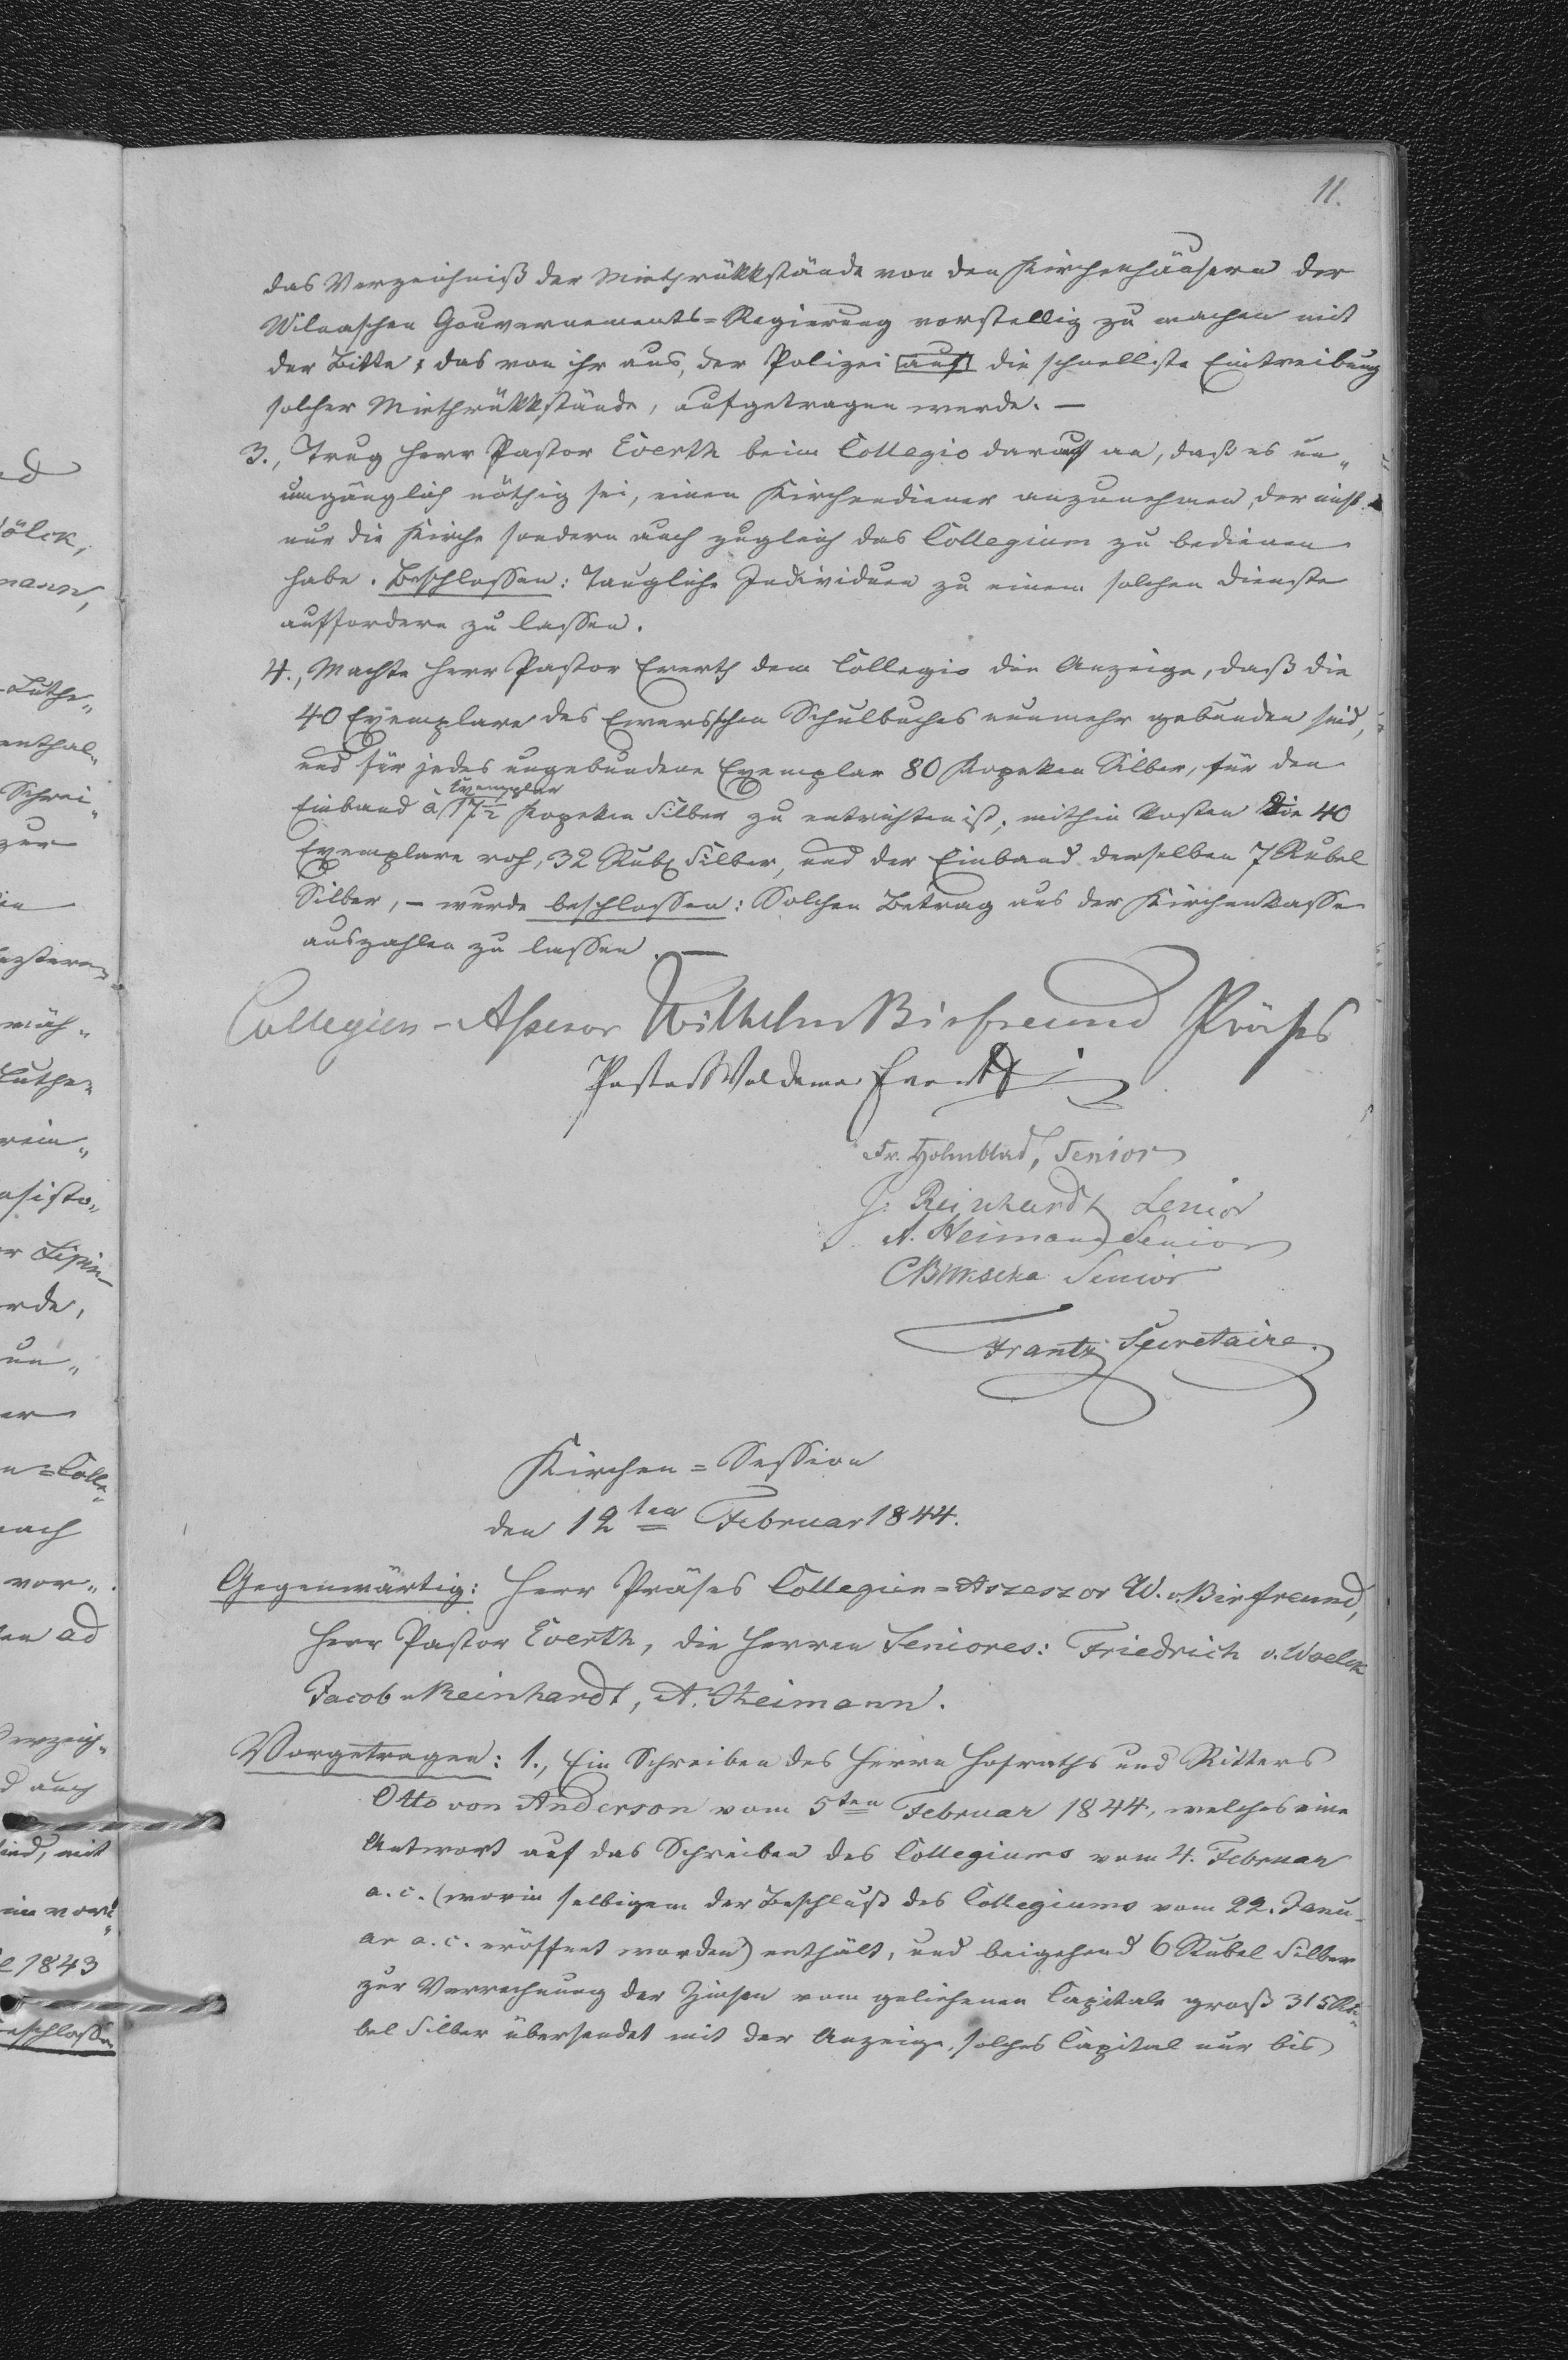 11.
das Verzeichniß der Miethrükkstände von den Kirchenhäusern der
Wilnaschen Gouvernements=Regierung vorstellig zu machen mit
der Bitte, das von ihr aus, der Polizei auf die schnellste Eintreibung
solcher Miethrükkstände, aufgetragen werde. —
3., Trug Herr Pastor Everth beim Collegio darauf an, daß es un„
umgänglich nöthig sei, einen Kirchendiener anzunehmen, der nicht
nur die Kirche sondern auch zugleich das Collegium zu bedienen
habe. Beschlossen: Taugliche Individuen zu einem solchen Dienste
auffordern zu lassen.
4., Machte Herr Pastor Everth dem Collegio die Anzeige, daß die
40 Exemplare des Ewersschen Schulbuches nunmehr gebunden sind,
und für jedes ungebundene Exemplar 80 Kopeken Silber, für den
Exemplar
Einband à 17½ Kopeken Silber zu entrichten ist; mithin kosten die 40
Exemplare roh, 32 Rub. Silber, und der Einband derselben 7 Rubel
Silber, – wurde beschlossen: Solchen Betrag aus der Kirchenkasse
auszahlen zu lassen. —
Collegien-Assessor Wilhelm Birfreund Präses
Pastor Woldemar Everth
Fr. Holmblad, Senior
J. Reinhardt Senior
A. Heimann Senior
Senior
Frantz Secretaire.
Kirchen=Session
den 12ten Februar 1844.
Gegenwärtig: Herr Präses Collegien=Assessor W. v. Birfreund,
Herr Pastor Everth, die Herren Seniores: Friedrich v. Woelck
Jacob Reinhardt, A. Heimann.
Vorgetragen: 1., Ein Schreiben des Herrn Hofraths und Ritters
Otto von Anderson vom 5ten Februar 1844, welches eine
Antwort auf das Schreiben des Collegiums vom 4. Februar
a. c. (worin selbigem der Beschluß des Collegiums vom 22. Janu-
ar a. c. eröffnet worden) enthält, und beigehend 6 Rubel Silber
zur Verrechnung der Zinsen vom geliehenen Capitale groß 315 Ru„
bel Silber übersendet mit der Anzeige, solches Capital nur bis